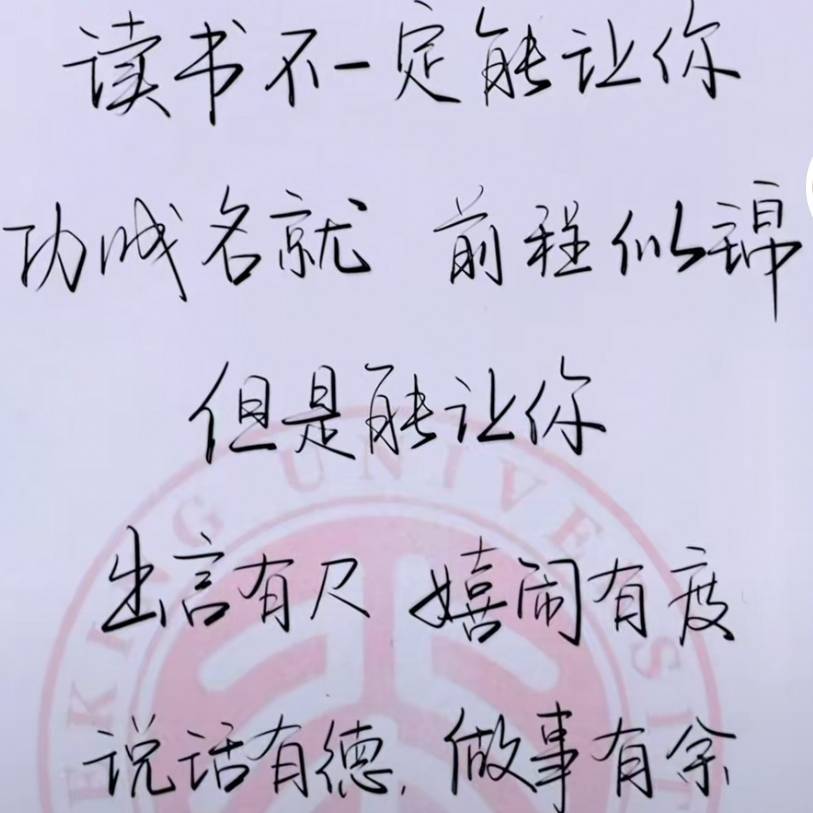 读书不一定能让你
功成名就 前程似锦
但是能让你
出言有尺 嬉闹有度
说话有德, 做事有余
EKING UNIVERSIT